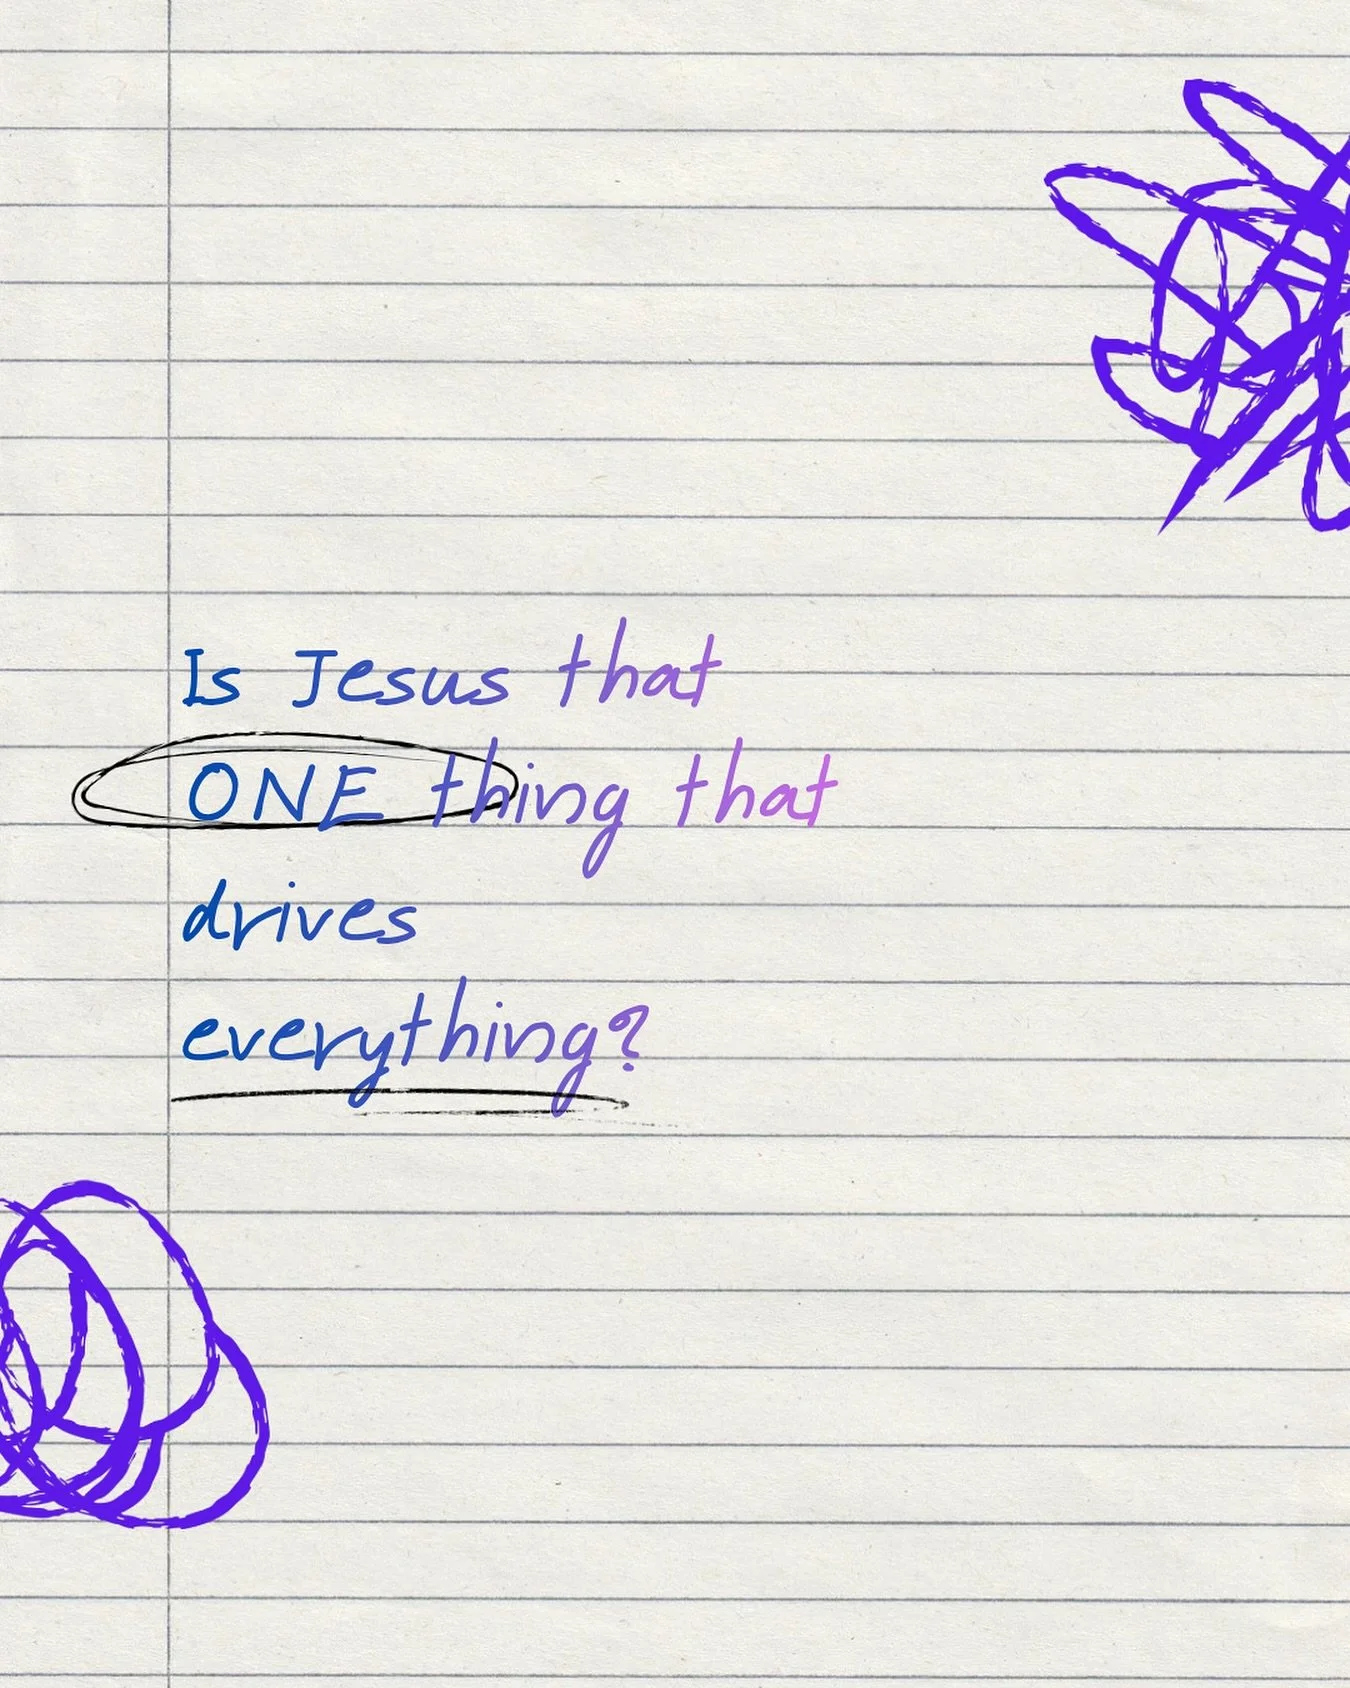 Is Jesus that
ONE thing that
drives
everything?